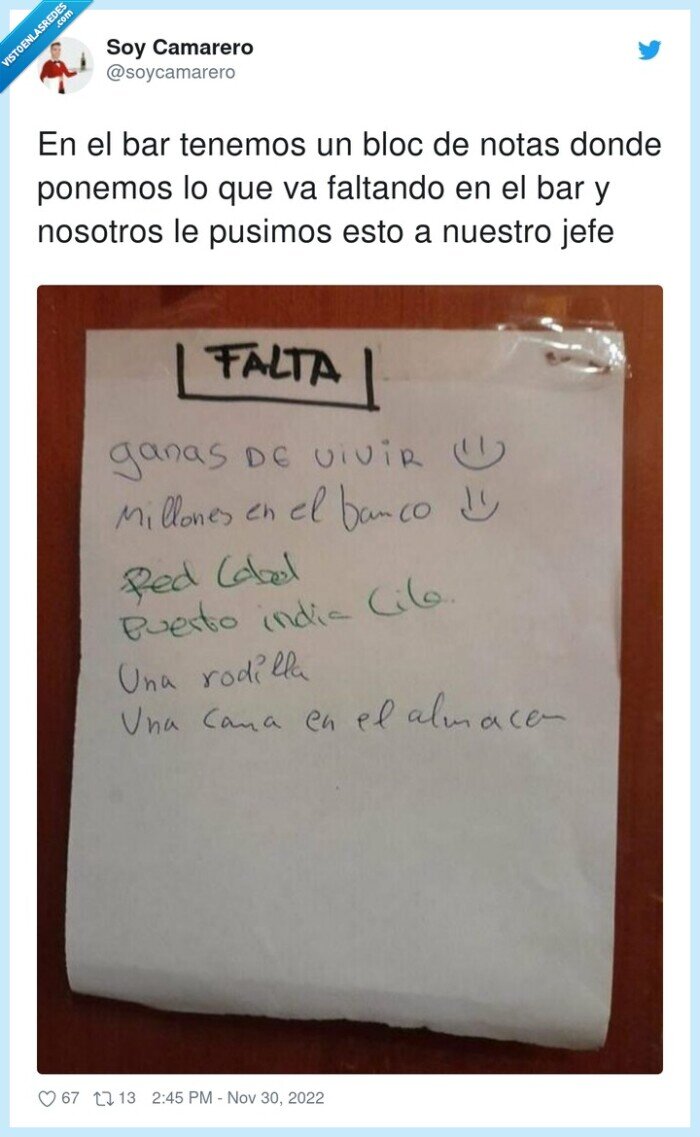 VISTOENLASREDES
.com
Soy Camarero
@soycamarero
En el bar tenemos un bloc de notas donde
ponemos lo que va faltando en el bar y
nosotros le pusimos esto a nuestro jefe
FALTA
ganas DE ViViR
Millones en el banco
Red Label
Puerto india
Una rodilla
Una cama en el almacen
67 13 2:45 PM - Nov 30, 2022